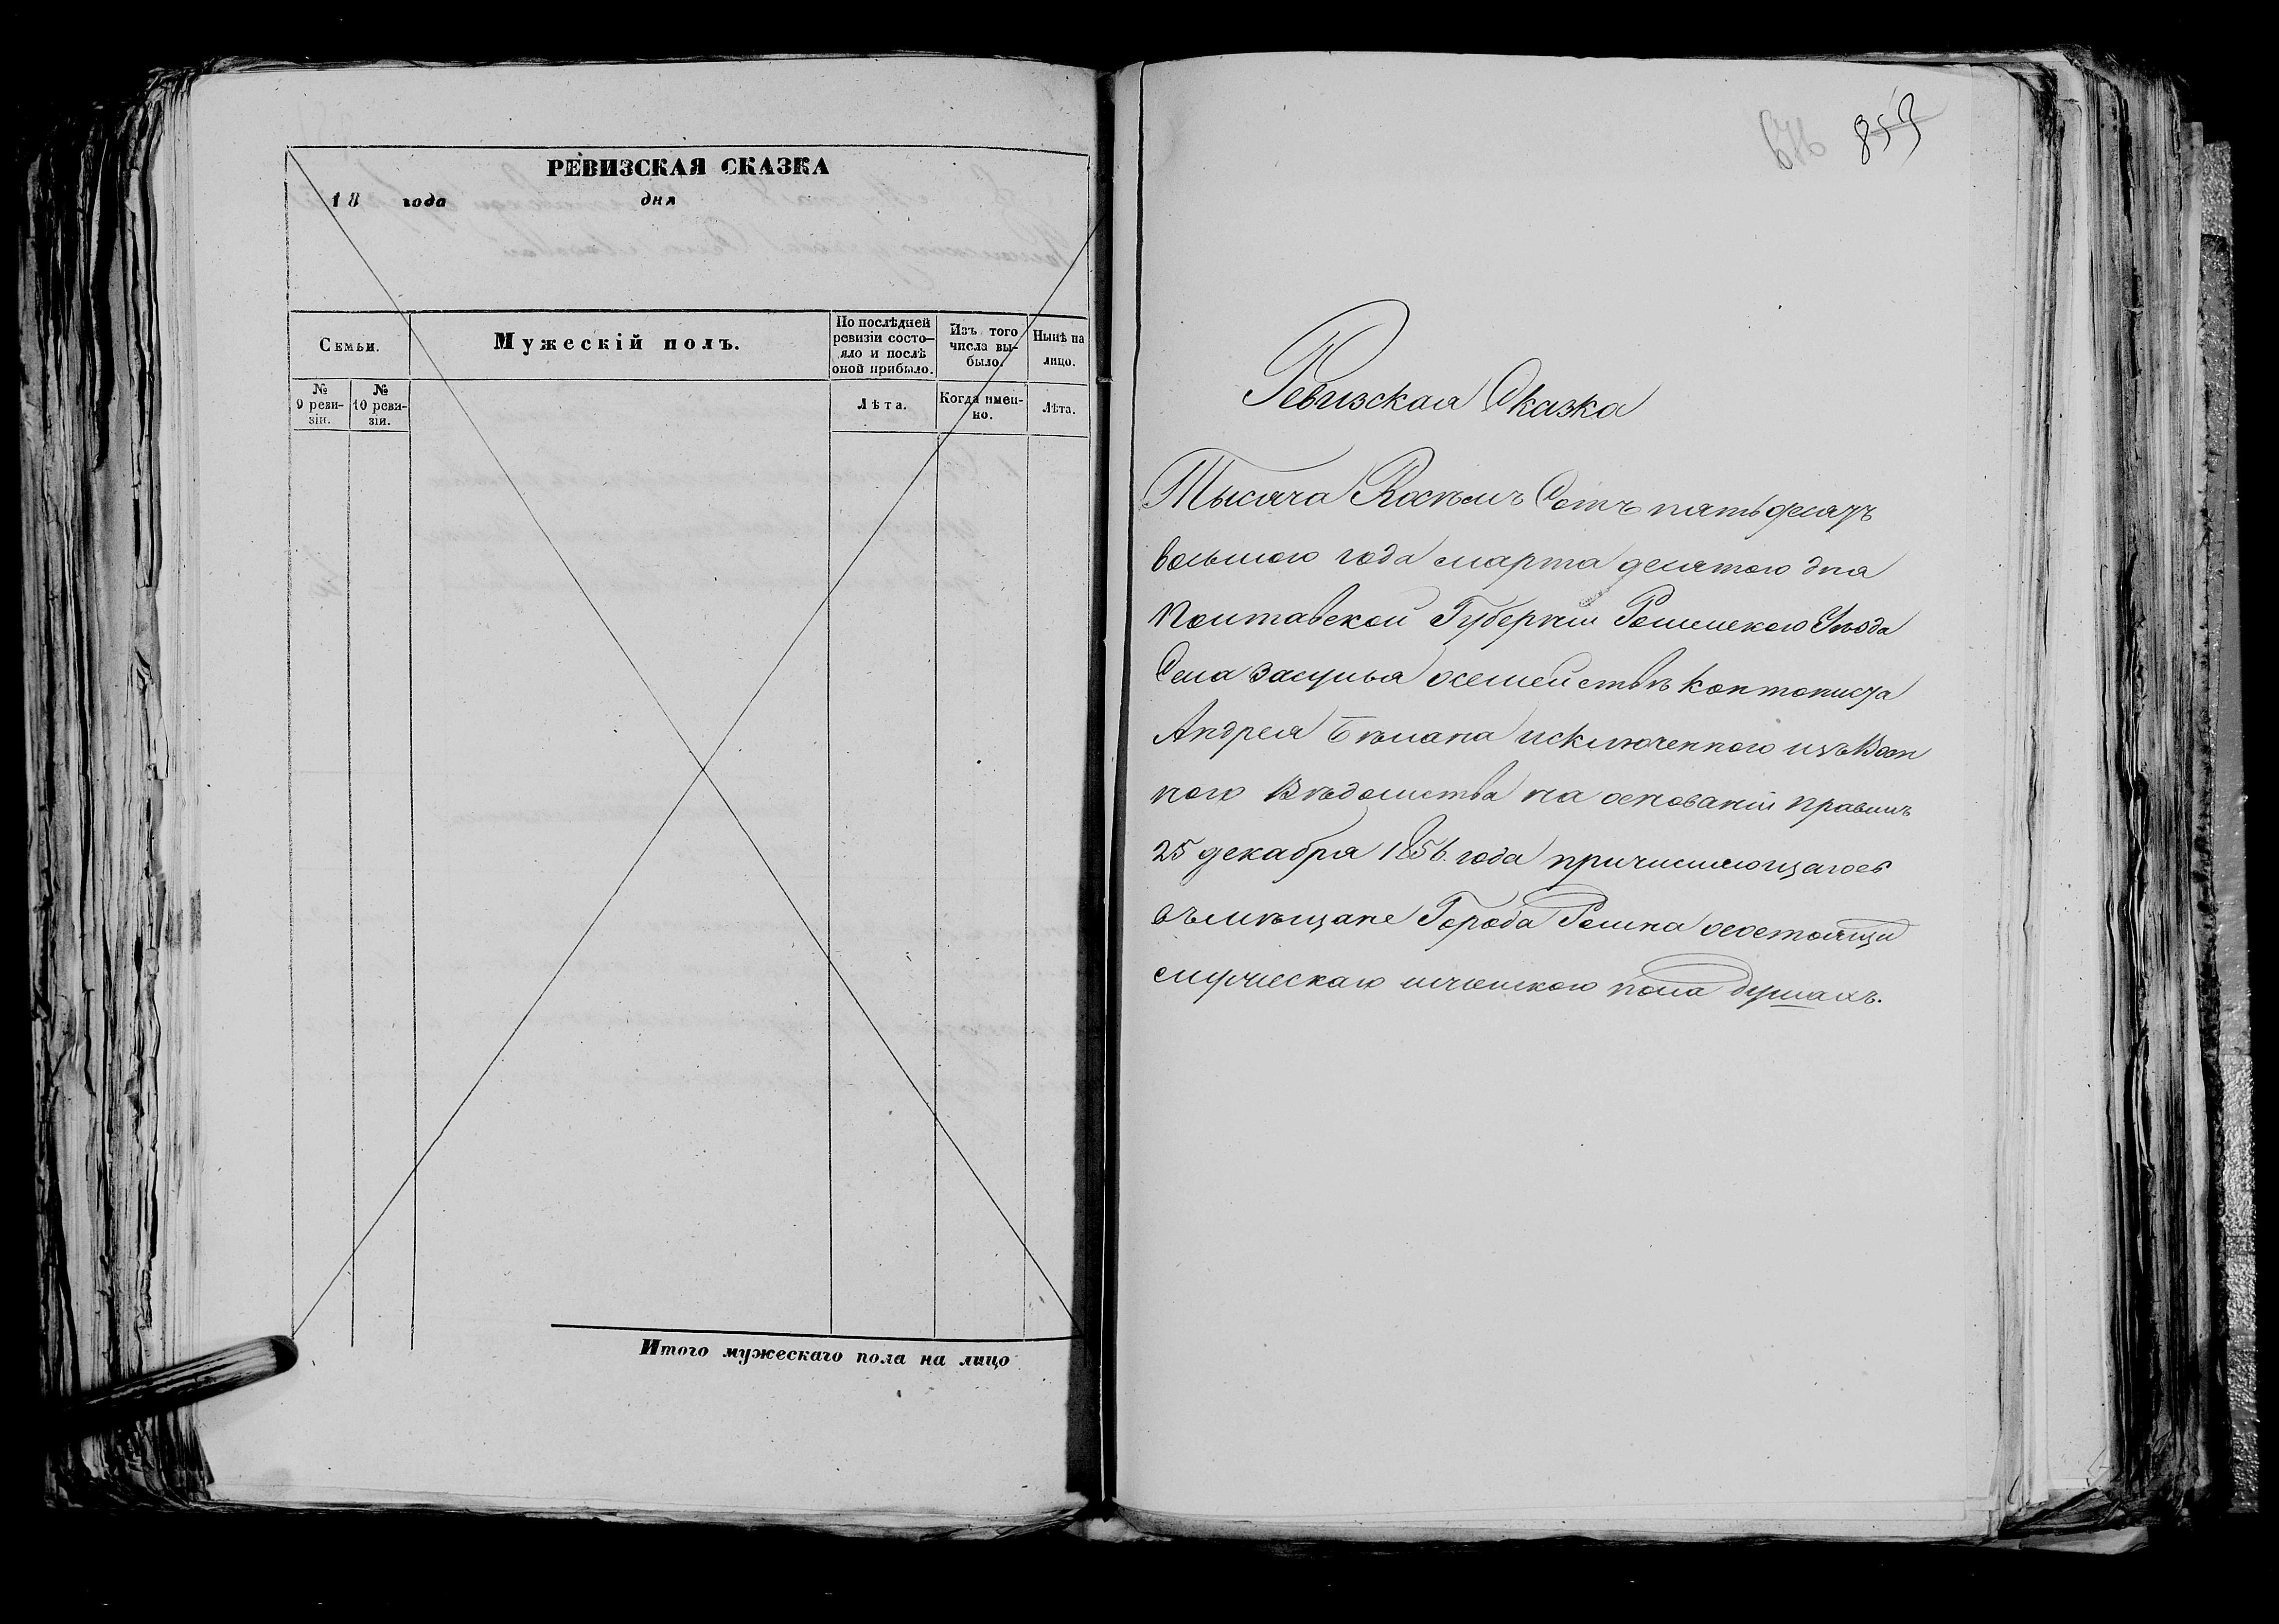 РЕВИЗСКАЯ СКАЗКА
18 года дня
Семьи.
Мужескій полъ.
По послѣдней ревизіи состо-
яло и послѣ
оной прибыло.
Изъ того
числа вы-
было.
Нынѣ на
лицо.
№
9 реви-
зіи.
№
10 реви-
зіи.
Лѣта.
Когда имен-
но.
Лѣта.
Итого мужескаго пола на лицо
676 859
Ревизская Сказка
Тысяча Восѣмъ Сотъ пятьдесятъ
восьмого года марта десятого дня
Полтавской Губерніи Роменского Уѣзда
Села Засулья осемействѣ кантониста
Андрея Бѣлана исключенного изъ Воен
ного Вѣдомства на основаніи правилъ
25 декабря 1856 года причисляющагося
въ мѣщане Города Ромна осостоящи
смужескаго иженского пола душахъ.